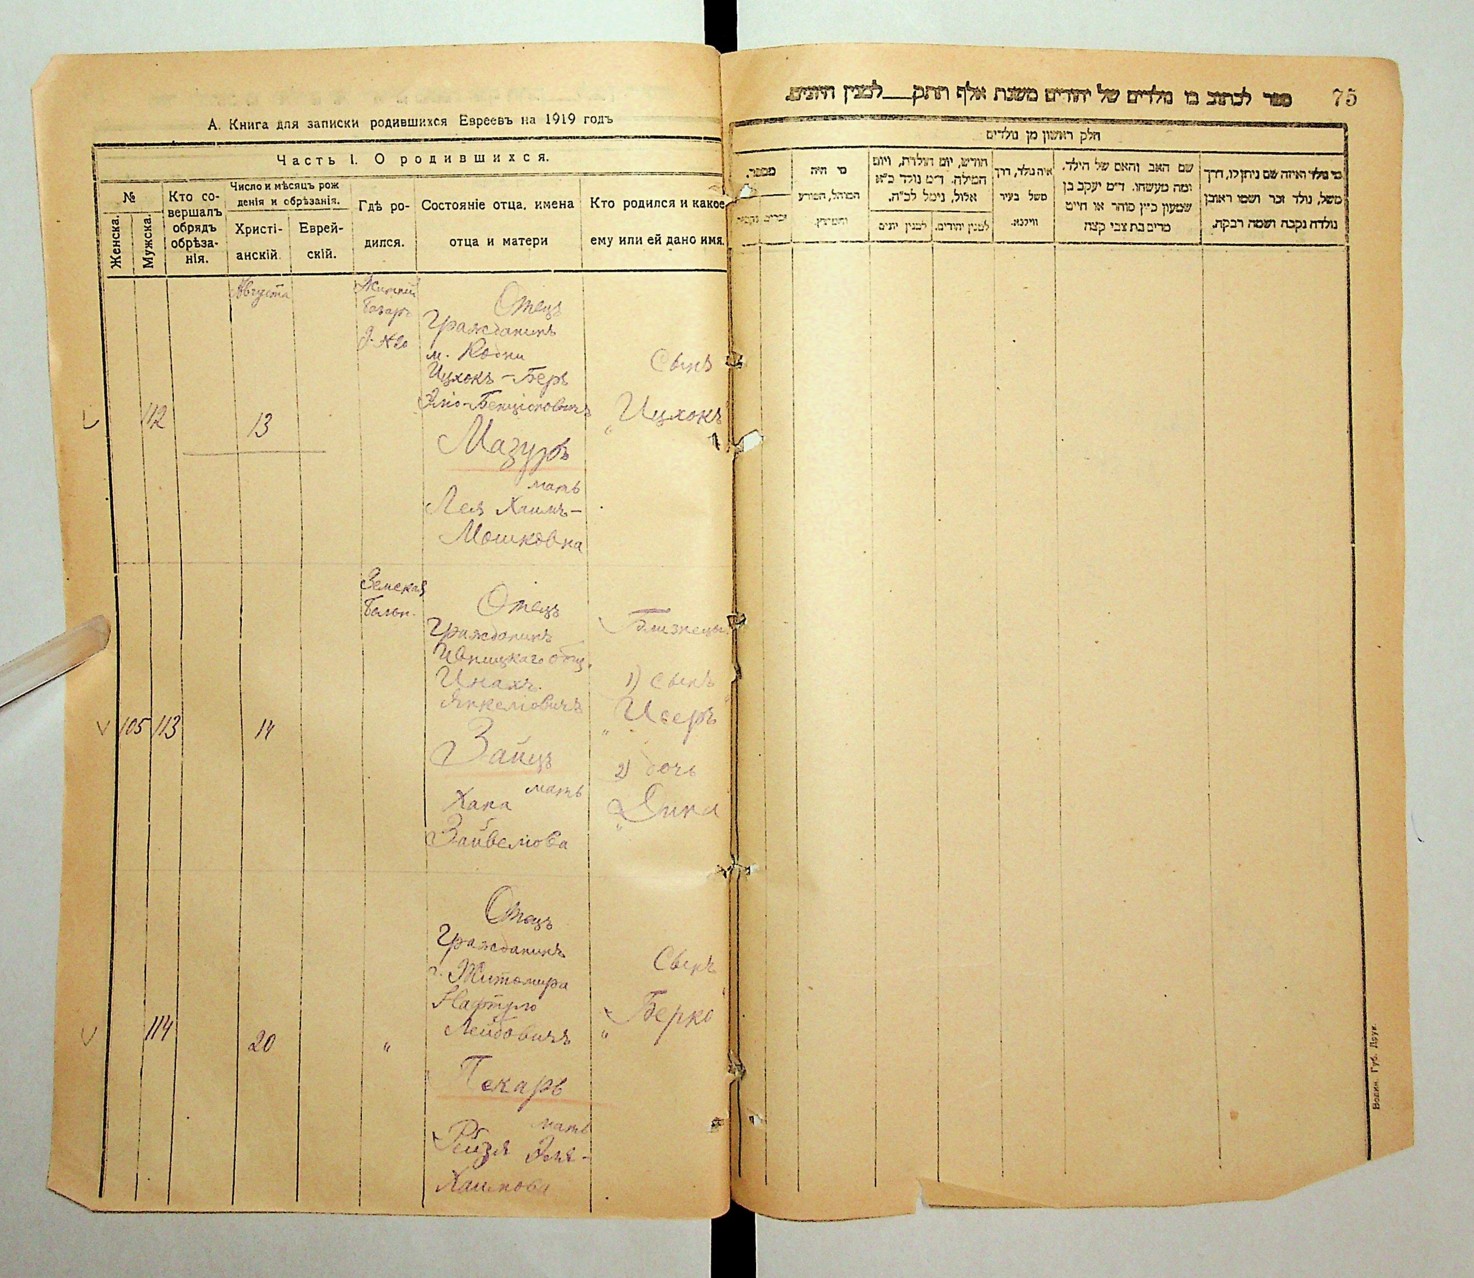 А. Книга для записки родившихся Евреевъ на 1919 годъ
Часть I. О родившихся.
№
Женска.
Мужска.
Кто со-
вершалъ
обрядъ
обрѣза-
нія.
Число и мѣсяцъ рож
денія и обрѣзанія.
Христі-
анскій.
Еврей-
скій.
Гдѣ ро-
дился.
Состояніе отца, имена
отца и матери
Кто родился и какое
ему или ей дано имя.
112
Августа
13
Житній
базаръ
д. №20
Отецъ
Гражданинъ
м. Кодни
Ицхокъ-Беръ
Эліо-Бенціоновичъ
Мазуръ
мать
Лея Хаимъ-
Мошковна
Сынъ
„Ицхокъ
105 113
14
Земская
больн.
Отецъ
Гражданинъ
Ивницкаго общ.
Инахъ
Янкеліовичъ
Заицъ
мать
Хана
Зайвеліова
Близнецы
1) Сынъ
„Исеръ
2) дочь
„Дина
114
20
„
Отецъ
Гражданинъ
г. Житомира
Нафтуло
Лейбовичъ
Пекаръ
мать
Рейзя Эля-
Хаимова
Сынъ
„Берко
75
ספר לכתוב בו נולדים של יהודים משנת אלף תתק___למנין היונים.
חלק ראשון מן נולדים
מספר.
זכרים. נקבות
מי היה
המוהל, הפורע
והמוצץ.
חודש, יום הולדת, ויום
המילה. ד״מ נולד כ״א
אלול, נימל לכ״ח.
למנין יונים
למנין יהודים.
איה נולד, דרך
משל בעיר
ווילנא.
שם האב והאם של הילד.
ומה מעשהו. ד״מ יעקב בן
שמעון כ״ץ סוחר או חייט
מרים בת צבי קצה
מי נולד ואיזה שם ניתן לו, דרך
משל, נולד זכר ושמו ראובן
נולדה נקבה ושמה רבקה.
Волин. Губ. Друк.